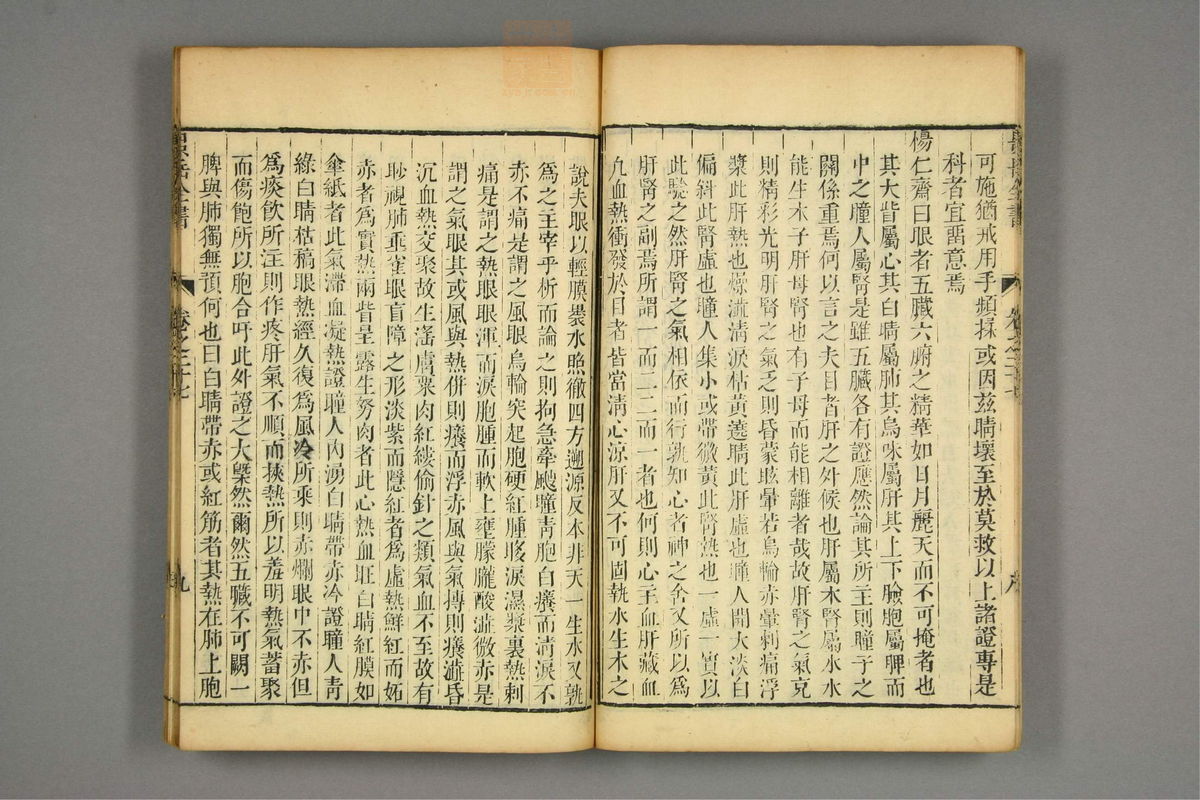 可施猶戒用手頻揉或因茲睛壞至於莫救以上諸證專是
科者宜畱意焉
楊仁齋曰眼者五臟六腑之精華如日月麗天而不可掩者也
其大眥屬心其白睛屬肺其烏味屬肝其上下瞼胞屬脾而
中之瞳人屬腎是雖五臟各有證應然論其所主則瞳子之
關係重焉何以言之夫目者肝之外候也肝屬木腎屬水水
能生木子肝母腎也有子母而能相離者哉故肝腎之氣克
則精彩光明肝腎之氣乏則昏蒙眩暈若烏輪赤暈刺痛浮
漿此肝熱也燥澁清淚枯黃遶睛此肝虛也瞳人開大淡白
偏斜此腎虛也瞳人集小或帶微黃此腎熱也一虛一實以
此驗之然肝腎之氣相依而行孰知心者神之舍又所以爲
肝腎之副焉所謂一而二二而一者也何則心主血肝藏血
凢血熱衝發於目者皆當清心涼肝又不可固執水生木之
說夫眼以輕膜褁水照徹四方遡源反本非天一生水又孰
爲之主宰乎析而論之則拘急牽颼瞳青胞白癢而清淚不
赤不痛是謂之風眼烏輪突起胞硬紅腫眵淚濕漿裏熱刺
痛是謂之熱眼眼渾而淚胞腫而軟上壅朦朧酸澁微赤是
謂之氣眼其或風與熱併則癢而浮赤風與氣摶則癢澁昏
沉血熱交聚故生滛膚粟肉紅縷偷針之類氣血不至故有
眇視肺垂雀眼盲障之形淡紫而隱紅者爲虛熱鮮紅而妬
赤者爲實熱兩眥呈露生努肉者此心熱血旺白睛紅膜如
傘紙者此氣滯血凝熱證瞳人內湧白睛帶赤冷證瞳人青
綠白睛枯稿眼熱經久復爲風冷所乘則赤爛眼中不赤但
爲痰飲所注則作疼肝氣不順而挾熱所以羞明熱氣蓄聚
而傷飽所以胞合吁此外證之大槩然爾然五臟不可闕一
脾與肺獨無預何也曰白睛帶赤或紅筋者其熱在肺上胞
卷之二十七
九